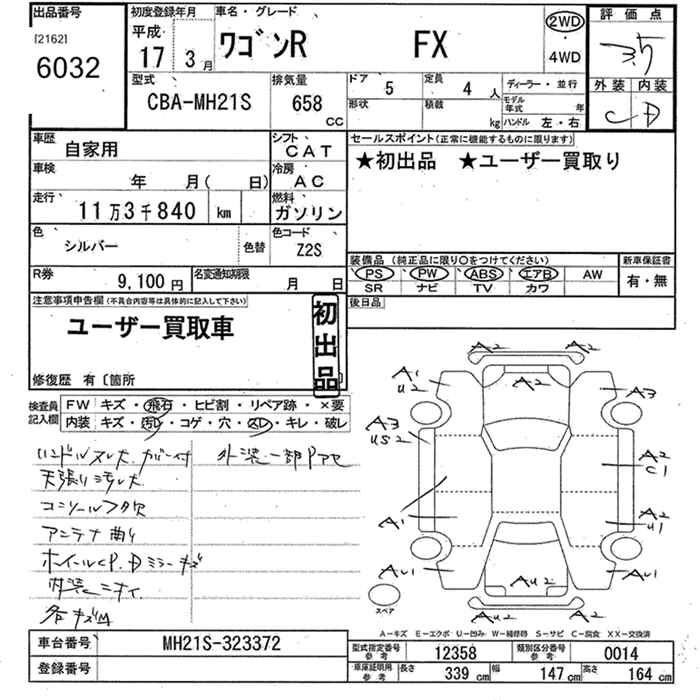 出品番号 初度登録年月 車名・グレード 評価点
[2162] 平成 ワゴンR FX 2WD 3.5
6032 17 3月 4WD 外装 内装
C D
型式 排気量 ドア 5 定員 4人 ディーラー・並行
CBA-MH21S 658 cc 形状 積載 kg モデル年式 年
ハンドル 左・右
車歴 自家用 シフト CAT セールスポイント(正常に機能するものに限ります)
車検 年 月( 日) 冷房 AC ★初出品 ★ユーザー買取り
走行 11万3千840 km 燃料 ガソリン
色 シルバー 色替 色コード Z2S
装備品 (純正品に限り○をつけてください) 新車保証書
PS PW ABS エアB AW 有・無
SR ナビ TV カワ
R券 9,100円 名変通知期限 月 日
後日品
注意事項申告欄(不具合内容等は具体的に記入して下さい)
ユーザー買取車
初出品
修復歴 有〔箇所
検査員記入欄 FW キズ・飛石・ヒビ割・リペア跡・×要
内装 キズ・汚れ・コゲ・穴・スレ・キレ・破レ
ハンドルスレ大 カバー付 外装一部
天張り汚れ大
コンソールフタ欠
アンテナ曲り
ホイールCP. Dミラーキズ
内装ニオイ
各キズ
A2 A2
A2
A1 U2 A3
A3 US2 A2 C1
A1 A2 U1
AU1 AU1
AU2
A2 A2
スペア
A-キズ E-エクボ U-凹み W-補修跡 S-サビ C-腐食 XX-交換済
車台番号 MH21S-323372
登録番号
型式指定番号 参考 12358 類別区分番号 参考 0014
車庫証明用 参考 長さ 339 cm 幅 147 cm 高さ 164 cm